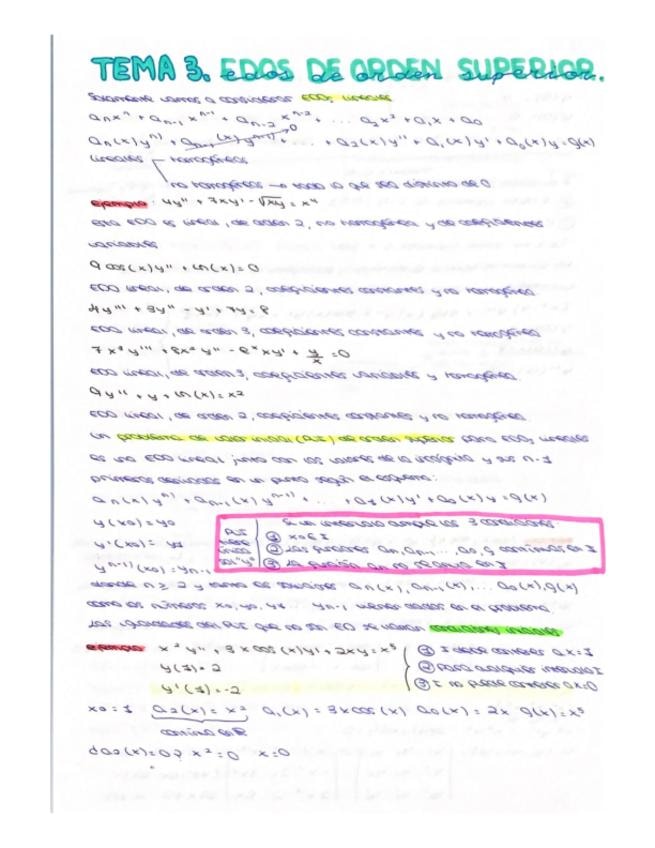 TEMA 3. EDOS DE ORDEN SUPERIOR.
edos de orden superior.
Solamente vamos a considerar EDOs lineales
aₙxⁿ + aₙ₋₁xⁿ⁻¹ + aₙ₋₂xⁿ⁻² + ... a₂x² + a₁x + a₀
aₙ(x)yⁿ⁾ + aₙ₋₁(x)yⁿ⁻¹⁾ + ... + a₂(x)y'' + a₁(x)y' + a₀(x)y = g(x)
0
lineales homogéneas
no homogéneas → todo lo que sea distinto de 0
ejemplo: 4y'' + 7xy' - √xy = x⁴
Esta EDO es lineal, de orden 2, no homogénea y de coeficientes
variables
9cos(x)y'' + ln(x) = 0
EDO lineal, de orden 2, coeficientes constantes y no homogénea
4y''' + 3y'' - y' + 7y = 8
EDO lineal, de orden 3, coeficientes constantes y no homogénea
EDO lineal, de orden 3, coeficientes variables y homogénea.
9y'' + y + ln(x) = x2
EDO lineal, de orden 2, coeficientes constantes y no homogénea
Un problema de valor inicial (PVI) de orden superior para EDOs lineales
es una EDO lineal junto con los valores de la incógnita y sus n-1
primeras derivadas en un punto según el esquema:
aₙ(x)yⁿ⁾ + aₙ₋₁(x)yⁿ⁻¹⁾ + ... + a₁(x)y' + a₀(x)y = g(x)
y(x0) = y0
y'(x0) = y1
yⁿ⁻¹⁾(x0) = yₙ₋₁
PVI tiene única sol "y"
Si un intervalo cumple las 3 condiciones:
① x0 ∈ I
② Las funciones aₙ, aₙ₋₁, ... a₀, g continuas en I
③ La función aₙ no se anula en I
donde n ≥ 2 y tanto las funciones aₙ(x), aₙ₋₁(x), ... a₀(x), g(x)
como los números x0, y0, y1 yₙ₋₁ vienen dados en el problema
Las igualdades del PVI que no son ED se llaman condiciones iniciales
ejemplo x²y'' + 3xcos(x)y' + 2xy = x⁵
y(1) = 2
y'(1) = -2
① I debe contener a x=1
② para cualquier intervalo I
③ I no puede contener a x=0
x0 = 1 a₂(x) = x² a₁(x) = 3xcos(x) a₀(x) = 2x g(x) = x⁵
continua en ℝ
¿a₂(x) = 0? x² = 0 x = 0